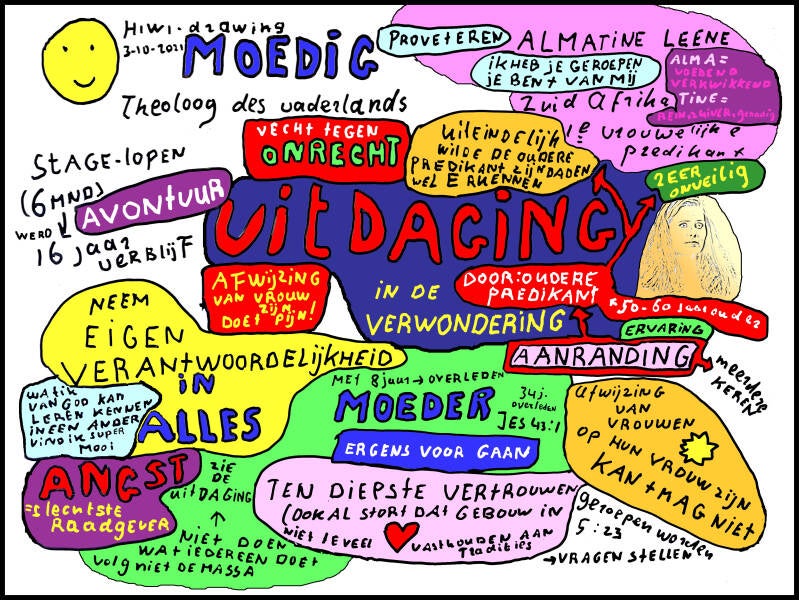 HIWI-drawing
3-10-2021
MOEDIG
PROVETEREN
ALMATINE LEENE
iK HEB JE GEROEPEN
JE BENT VAN MIJ
ALMA =
VOEDEND
VERKWIKKEND
TINE =
REIN, ZUIVER, genadig
Zuid Afrika
1e vrouwelijke
predikant
Theoloog des vaderlands
VECHT TEGEN
ONRECHT
UiLEINDELIJK
WILDE DE OUDERE
PREDIKANT ZIJN DADEN
WEL ERKENNEN
ZEER
ONVEILIG
STAGE-LOPEN
(6 MND)
WERD
16 jaar
VERBLIJF
AVONTUUR
UITDAGING
AFWIJZING
VAN VROUW
ZIJN
DOET PIJN!
iN DE
VERWONDERING
DOOR: OUDERE
PREDIKANT
50-60 jaar ouder
ERVARING
AANRANDING
meerdere
KEREN
NEEM
EIGEN
VERANTWOORDELIJKHEID
iN
ALLES
WAT iK
VAN GOD KAN
LEREN KENNEN
IN EEN ANDER
VIND iK SUPER
MOOI
MET 8 jaar → OVERLEDEN
MOEDER
34 j.
OVERLEDEN
JES 43:1
ERGENS VOOR GAAN
afwijzing
VAN
VROUWEN
OP HUN VROUW ZIJN
KAN + MAG NIET
ANGST
= slechtste
Raadgever
ZIE
DE
uitDAGING
NIET DOEN
WAT iEDEREEN DOET
volg niET DE MASSA
TEN DIEPSTE VERTROUWEN
(OOK AL STORT DAT GEBOUW IN
NIET TEVEEL
VASTHOUDEN AAN
Tradities
geroepen worden
5:23
→ VRAGEN STELLEN